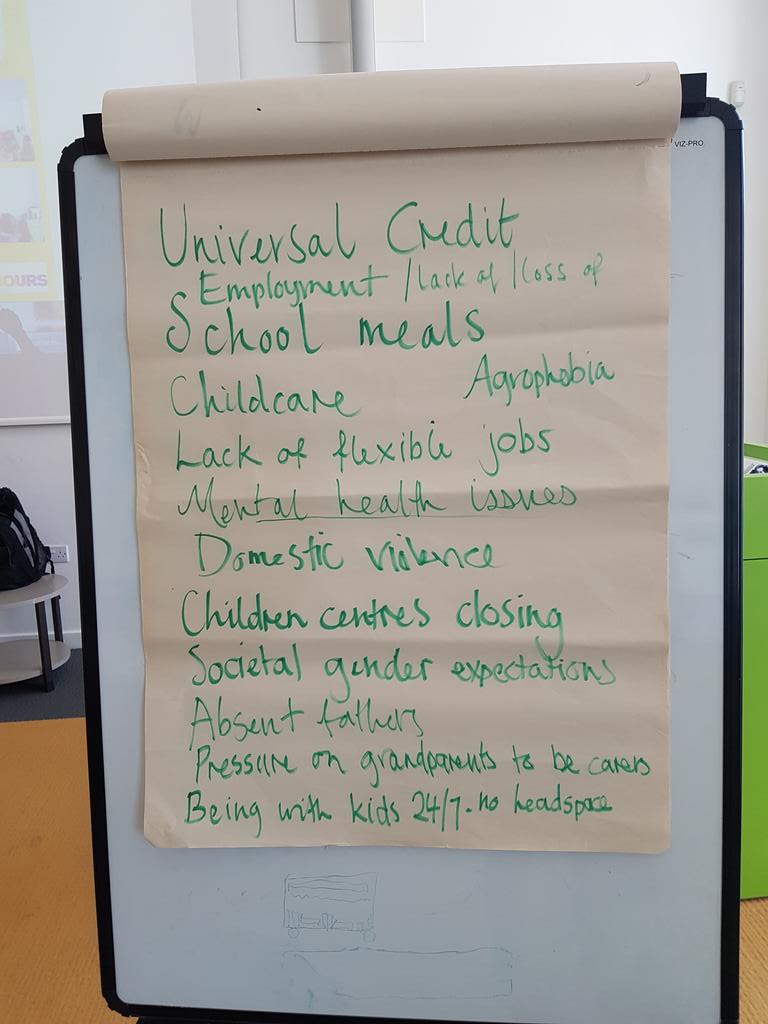 VIZ-PRO
OURS
Universal Credit
Employment /Lack of /Loss of
School meals
Childcare
Agrophobia
Lack of flexible jobs
Mental health issues
Domestic violence
Children centres closing
Societal gender expectations
Absent fathers
Pressure on grandparents to be carers
Being with kids 24/7 - no headspace